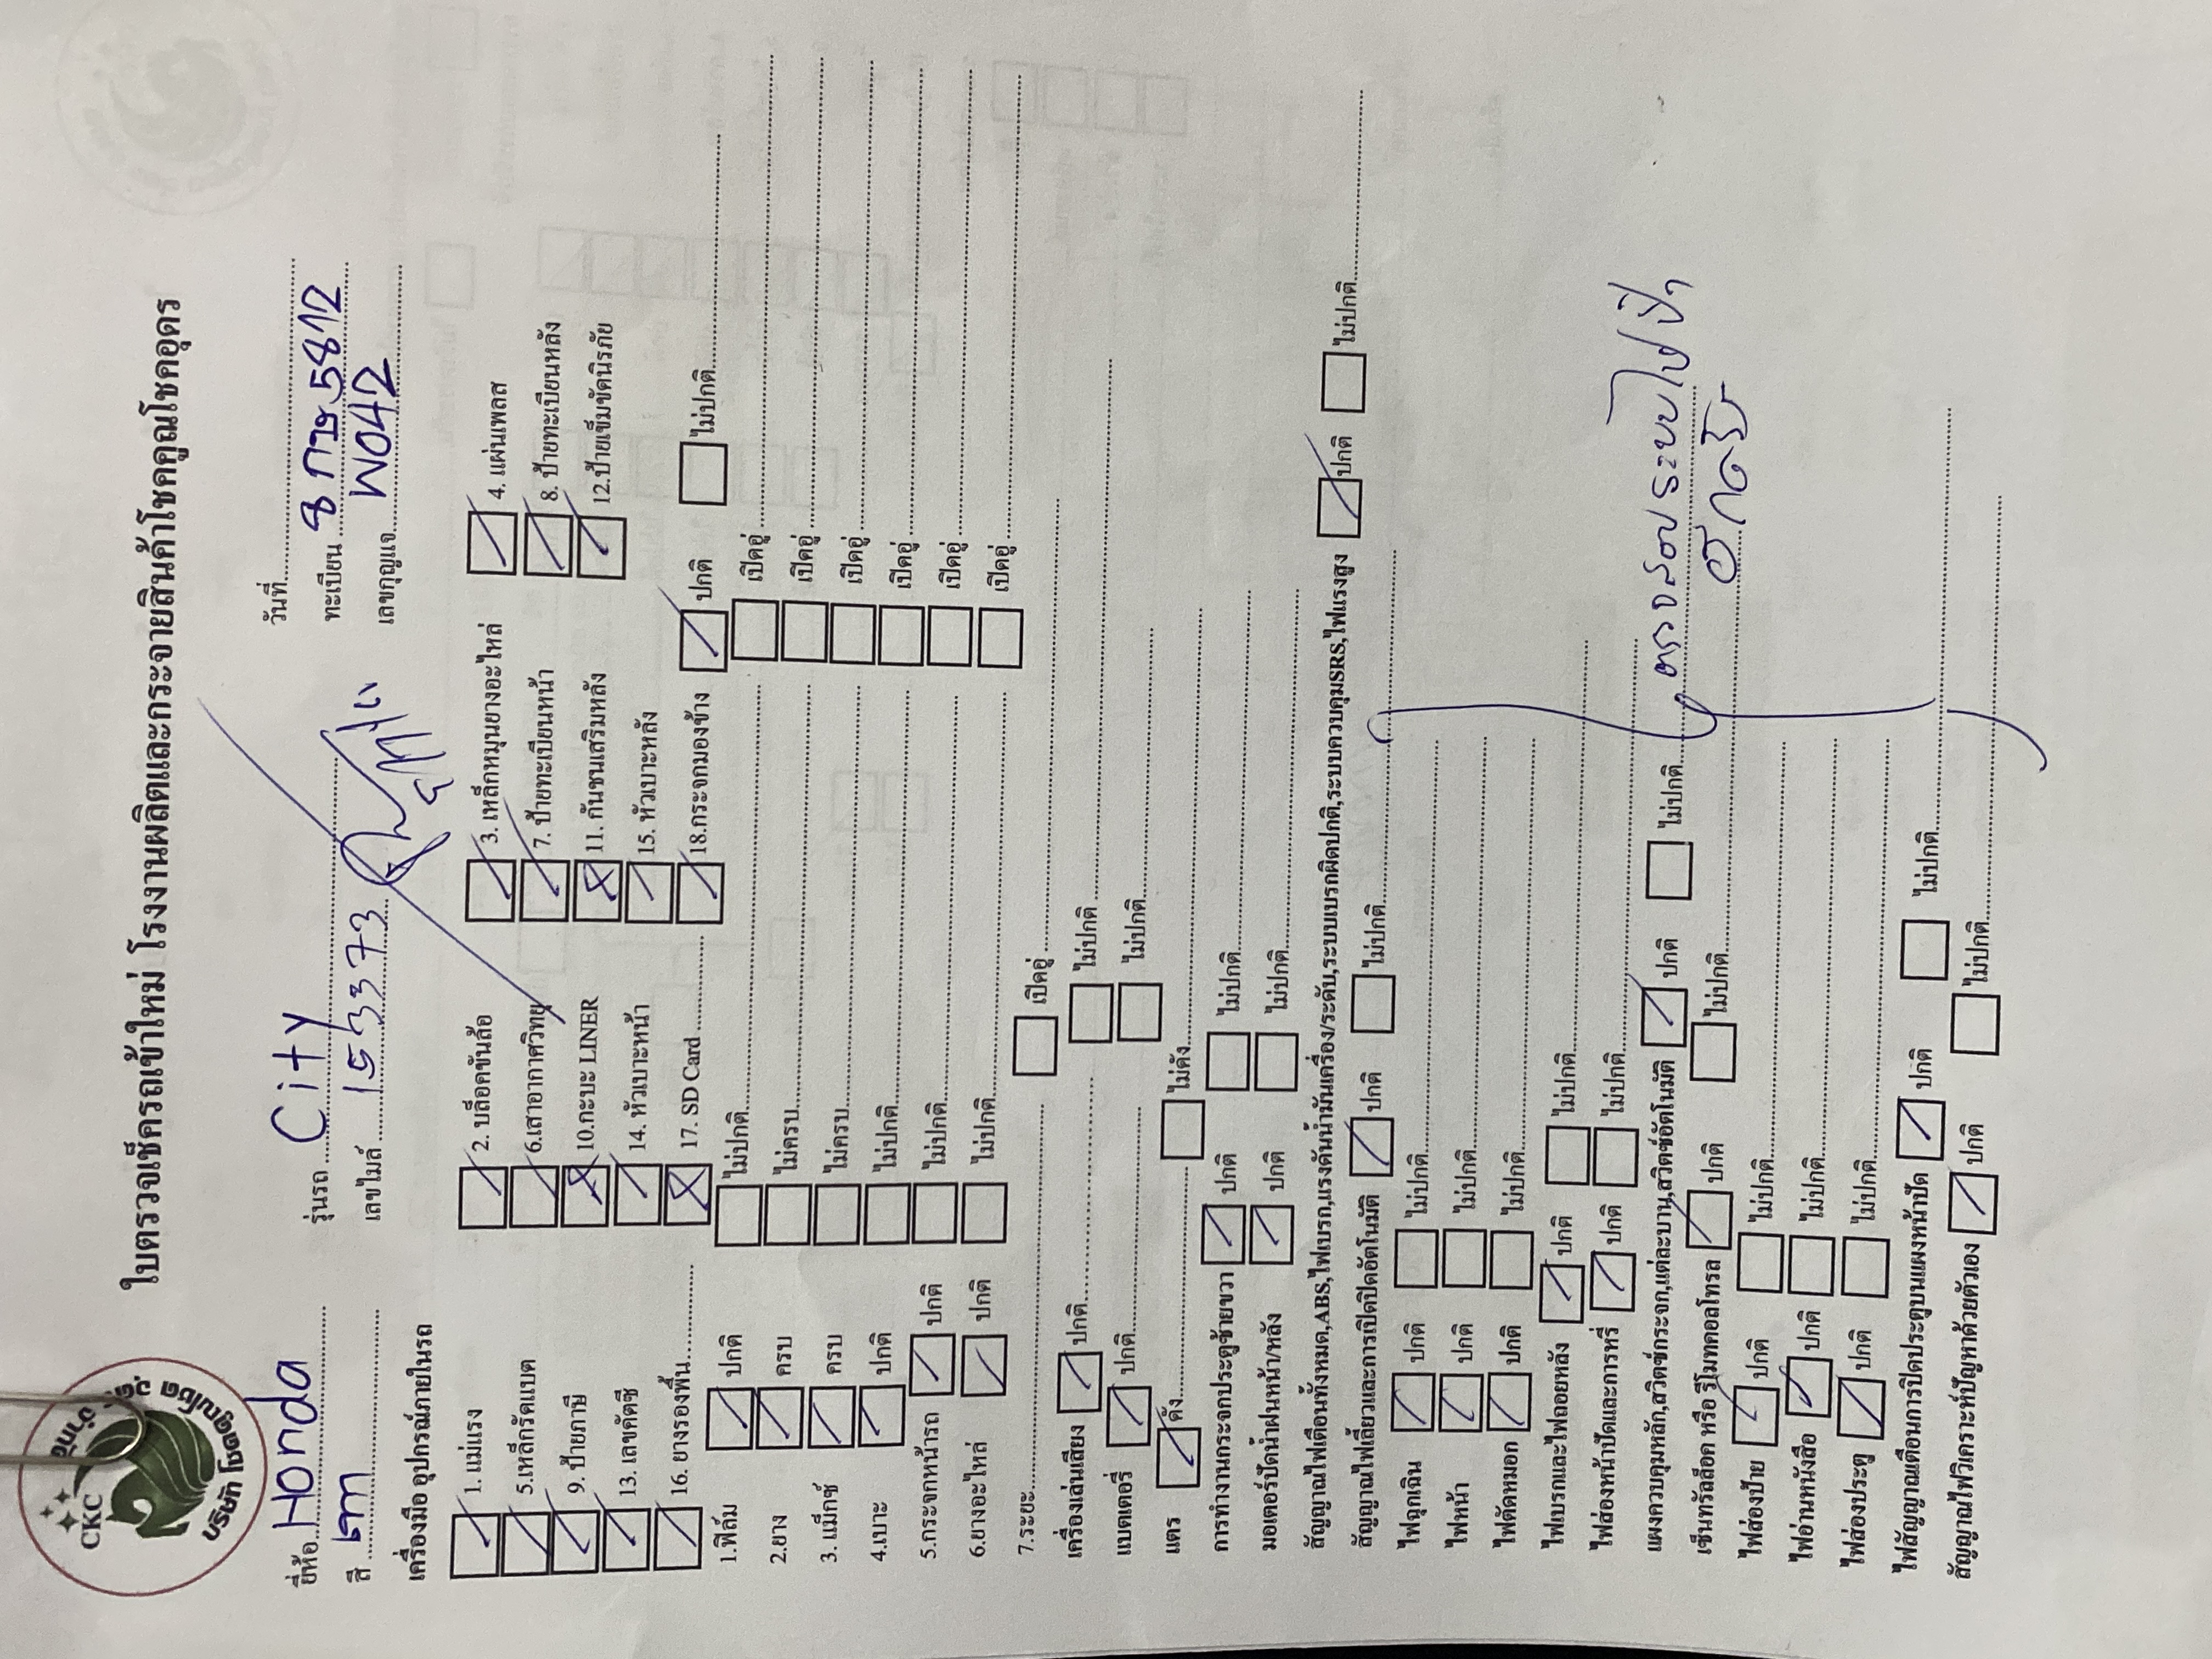 CKC
ใบตรวจเช็ครถเข้าใหม่ โรงงานผลิตและกระจายสินค้าโชคคูณโชคอุดร
วันที่
ยี่ห้อ Honda รุ่นรถ City ทะเบียน 8 กษ 5812
สี เทา เลขไมล์ 153373 เลขกุญแจ W042
เครื่องมือ อุปกรณ์ภายในรถ
1. แม่แรง 2. บล็อคขันล้อ 3. เหล็กหมุนยางอะไหล่ 4. แผ่นเพลส
5.เหล็กรัดแบต 6.เสาอากาศวิทยุ 7. ป้ายทะเบียนหน้า 8. ป้ายทะเบียนหลัง
9. ป้ายภาษี 10.กะบะ LINER 11. กันชนเสริมหลัง 12.ป้ายเข็มขัดนิรภัย
13. เลขคัตซี 14. หัวเบาะหน้า 15. หัวเบาะหลัง
16. ยางรองพื้น 17. SD Card 18.กระจกมองข้าง ปกติ ไม่ปกติ
1.ฟิล์ม ปกติ ไม่ปกติ เปิดอู่
2.ยาง ครบ ไม่ครบ เปิดอู่
3. แม็กซ์ ครบ ไม่ครบ เปิดอู่
4.เบาะ ปกติ ไม่ปกติ เปิดอู่
5.กระจกหน้ารถ ปกติ ไม่ปกติ เปิดอู่
6.ยางอะไหล่ ปกติ ไม่ปกติ เปิดอู่
7.ระยะ เปิดอู่
เครื่องเล่นเสียง ปกติ ไม่ปกติ
แบตเตอรี่ ปกติ ไม่ปกติ
แตร ดัง ไม่ดัง
การทำงานกระจกประตูซ้ายขวา ปกติ ไม่ปกติ
มอเตอร์ปัดน้ำฝนหน้า/หลัง ปกติ ไม่ปกติ
สัญญาณไฟเตือนทั้งหมด,ABS,ไฟเบรก,แรงดันน้ำมันเครื่อง/ระดับ,ระบบเบรกผิดปกติ,ระบบควบคุมSRS,ไฟแรงสูง ปกติ ไม่ปกติ
สัญญาณไฟเลี้ยวและการเปิดปิดอัตโนมัติ ปกติ ไม่ปกติ
ไฟฉุกเฉิน ปกติ ไม่ปกติ
ไฟหน้า ปกติ ไม่ปกติ
ไฟตัดหมอก ปกติ ไม่ปกติ
ไฟเบรกและไฟถอยหลัง ปกติ ไม่ปกติ
ไฟส่องหน้าปัดและการหรี่ ปกติ ไม่ปกติ
แผงควบคุมหลัก,สวิตซ์กระจก,แต่ละบาน,สวิตซ์อัตโนมัติ ปกติ ไม่ปกติ ตรวจสอบระบบไฟ
เซ็นทรัลล็อค หรือ รีโมทคอลโทรล ปกติ ไม่ปกติ
ไฟส่องป้าย ปกติ ไม่ปกติ
ไฟอ่านหนังสือ ปกติ ไม่ปกติ
ไฟส่องประตู ปกติ ไม่ปกติ
ไฟสัญญาณเตือนการปิดประตูบนแผงหน้าปัด ปกติ ไม่ปกติ
สัญญาณไฟวิเคราะห์ปัญหาด้วยตัวเอง ปกติ ไม่ปกติ